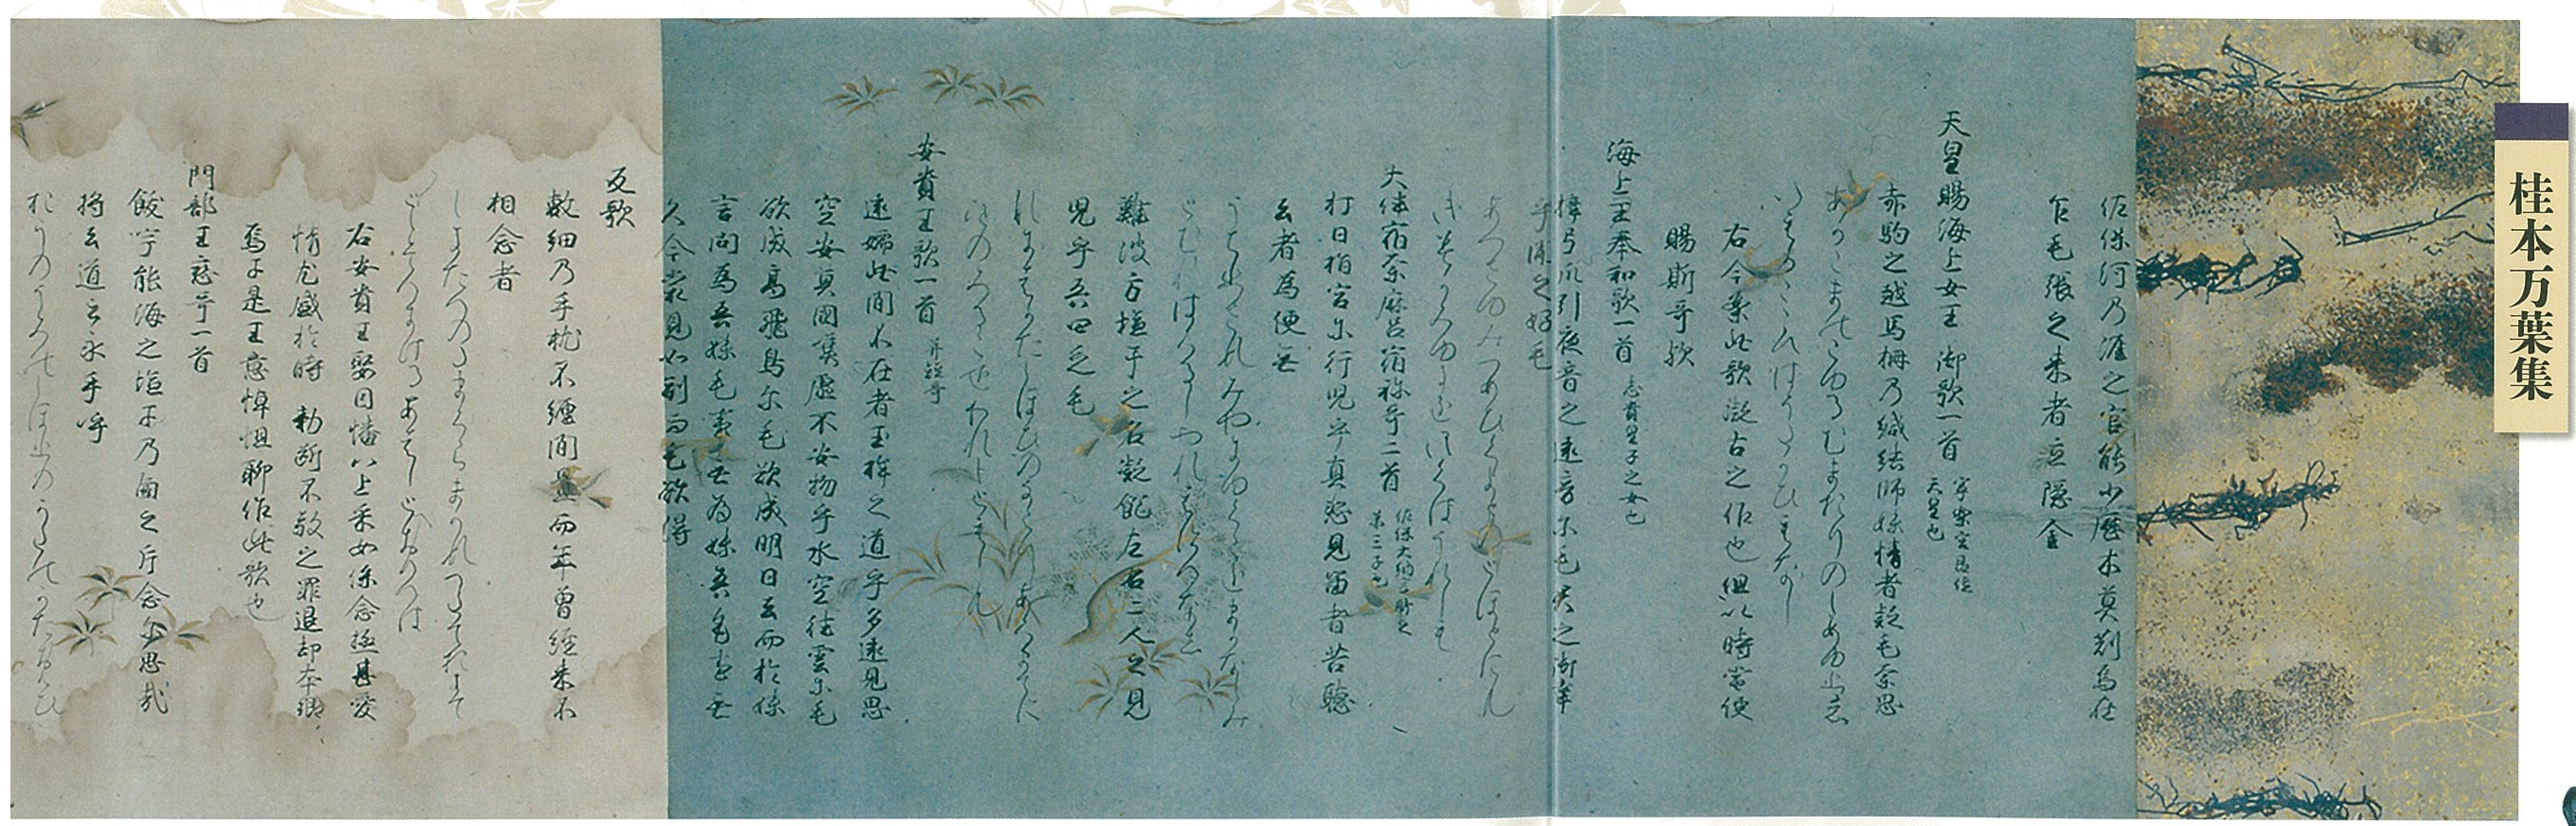 桂本万葉集
佐保河乃涯之官能少歴木莫刈焉在
乍毛張之来者立隠金
天皇賜海上女王御歌一首 寧樂宮即位天皇也
赤駒之越馬柵乃緘結師妹情者疑毛奈思
あかこまのこゆるむまたりのしめゆひし
いものこゝろはうたかひもなし
右今案此歌擬古之作也但以時當便
賜斯哥歟
海上王奉和歌一首 志貴皇子之女也
梓弓爪引夜音之遠音尓毛君之御幸
乎聞之好毛
あつさゆみつまひくよとのとほとにも
きみかみゆきをきくはうれしも
大伴宿奈麻呂宿祢哥二首 佐保大納言卿之第三子也
打日指宮尓行児乎真悲見留者苦聴
去者為便無
難波方塩干之名凝飽左右二人之見
児乎吾四乏毛
なにはかたしほひのなこりあくまてに
ひとのみるこをわれしともしも
安貴王歌一首 并短哥
遠嬬此間不在者玉桙之道乎多遠見思
空安莫國嘆虚不安物乎水空徃雲尓毛
欲成高飛鳥尓毛欲成明日去而於妹
言問為吾妹毛事無為妹吾毛事無
久今裳見如副而毛欲得
反歌
敷細乃手枕不纒間置而年曽経来不
相念者
しきたへのたまくらまかすへたておきて
としそへにけるあはしとおもへは
右安貴王娶因幡八上釆女係念極甚愛
情尤盛於時勅断不敬之罪退却本郷
焉于是王意悼怛聊作此歌也
門部王戀哥一首
飫宇能海之塩干乃滷之片念尓思哉
将去道之永手呼